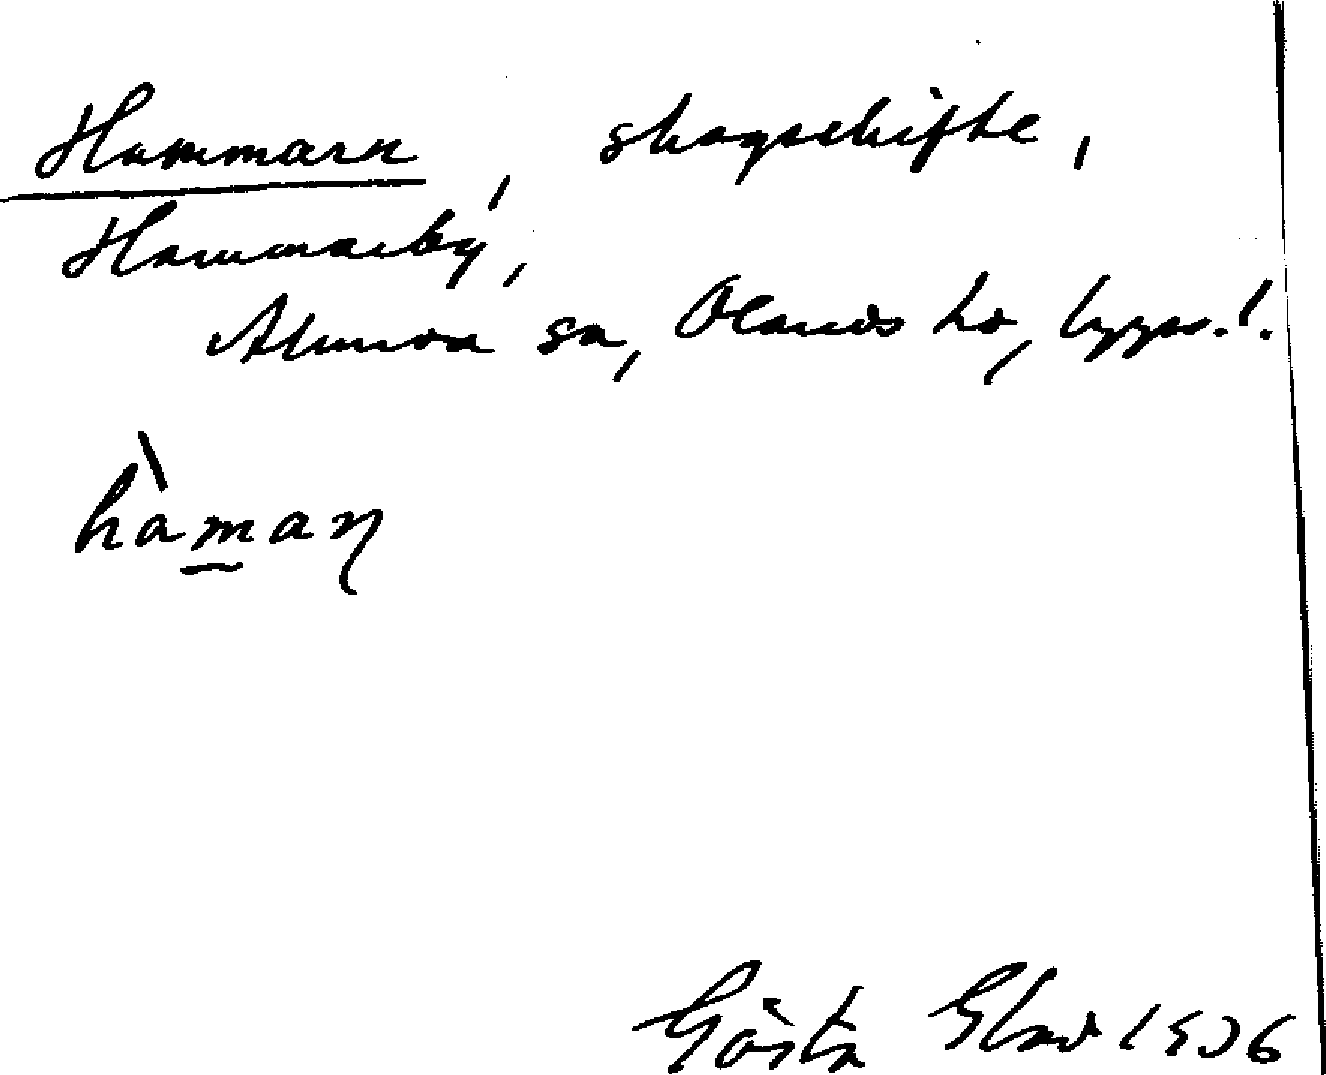 Hammarn, skogsskifte,
Hammarby,
Almunga sn, Olands hd, Uppsa. l.
hàmaɳ
Gösta Ekman 1936